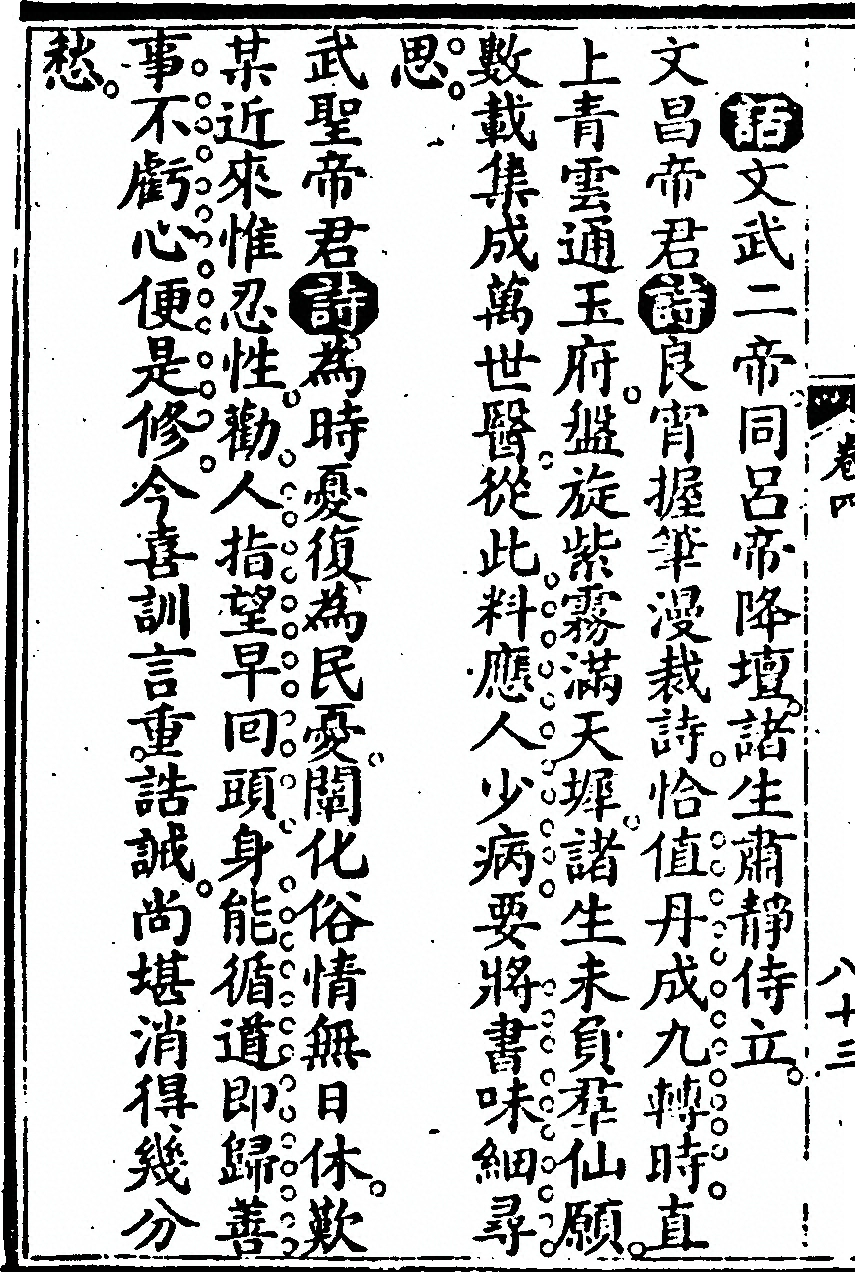 卷四
八十三
話文武二帝同呂帝降壇諸生肅靜侍立。
文昌帝君詩良宵握筆漫裁詩。恰值丹成九轉時。直
上青雲通玉府。盤旋紫霧滿天墀。諸生未負羣仙願。
數載集成萬世醫。從此料應人少病。要將書味細尋
思。
武聖帝君詩為時憂復為民憂。闡化俗情無日休。歎
某近來惟忍性。勸人指望早回頭。身能循道即歸善。
事不虧心便是修。今喜訓言重誥誡。尚堪消得幾分
愁。